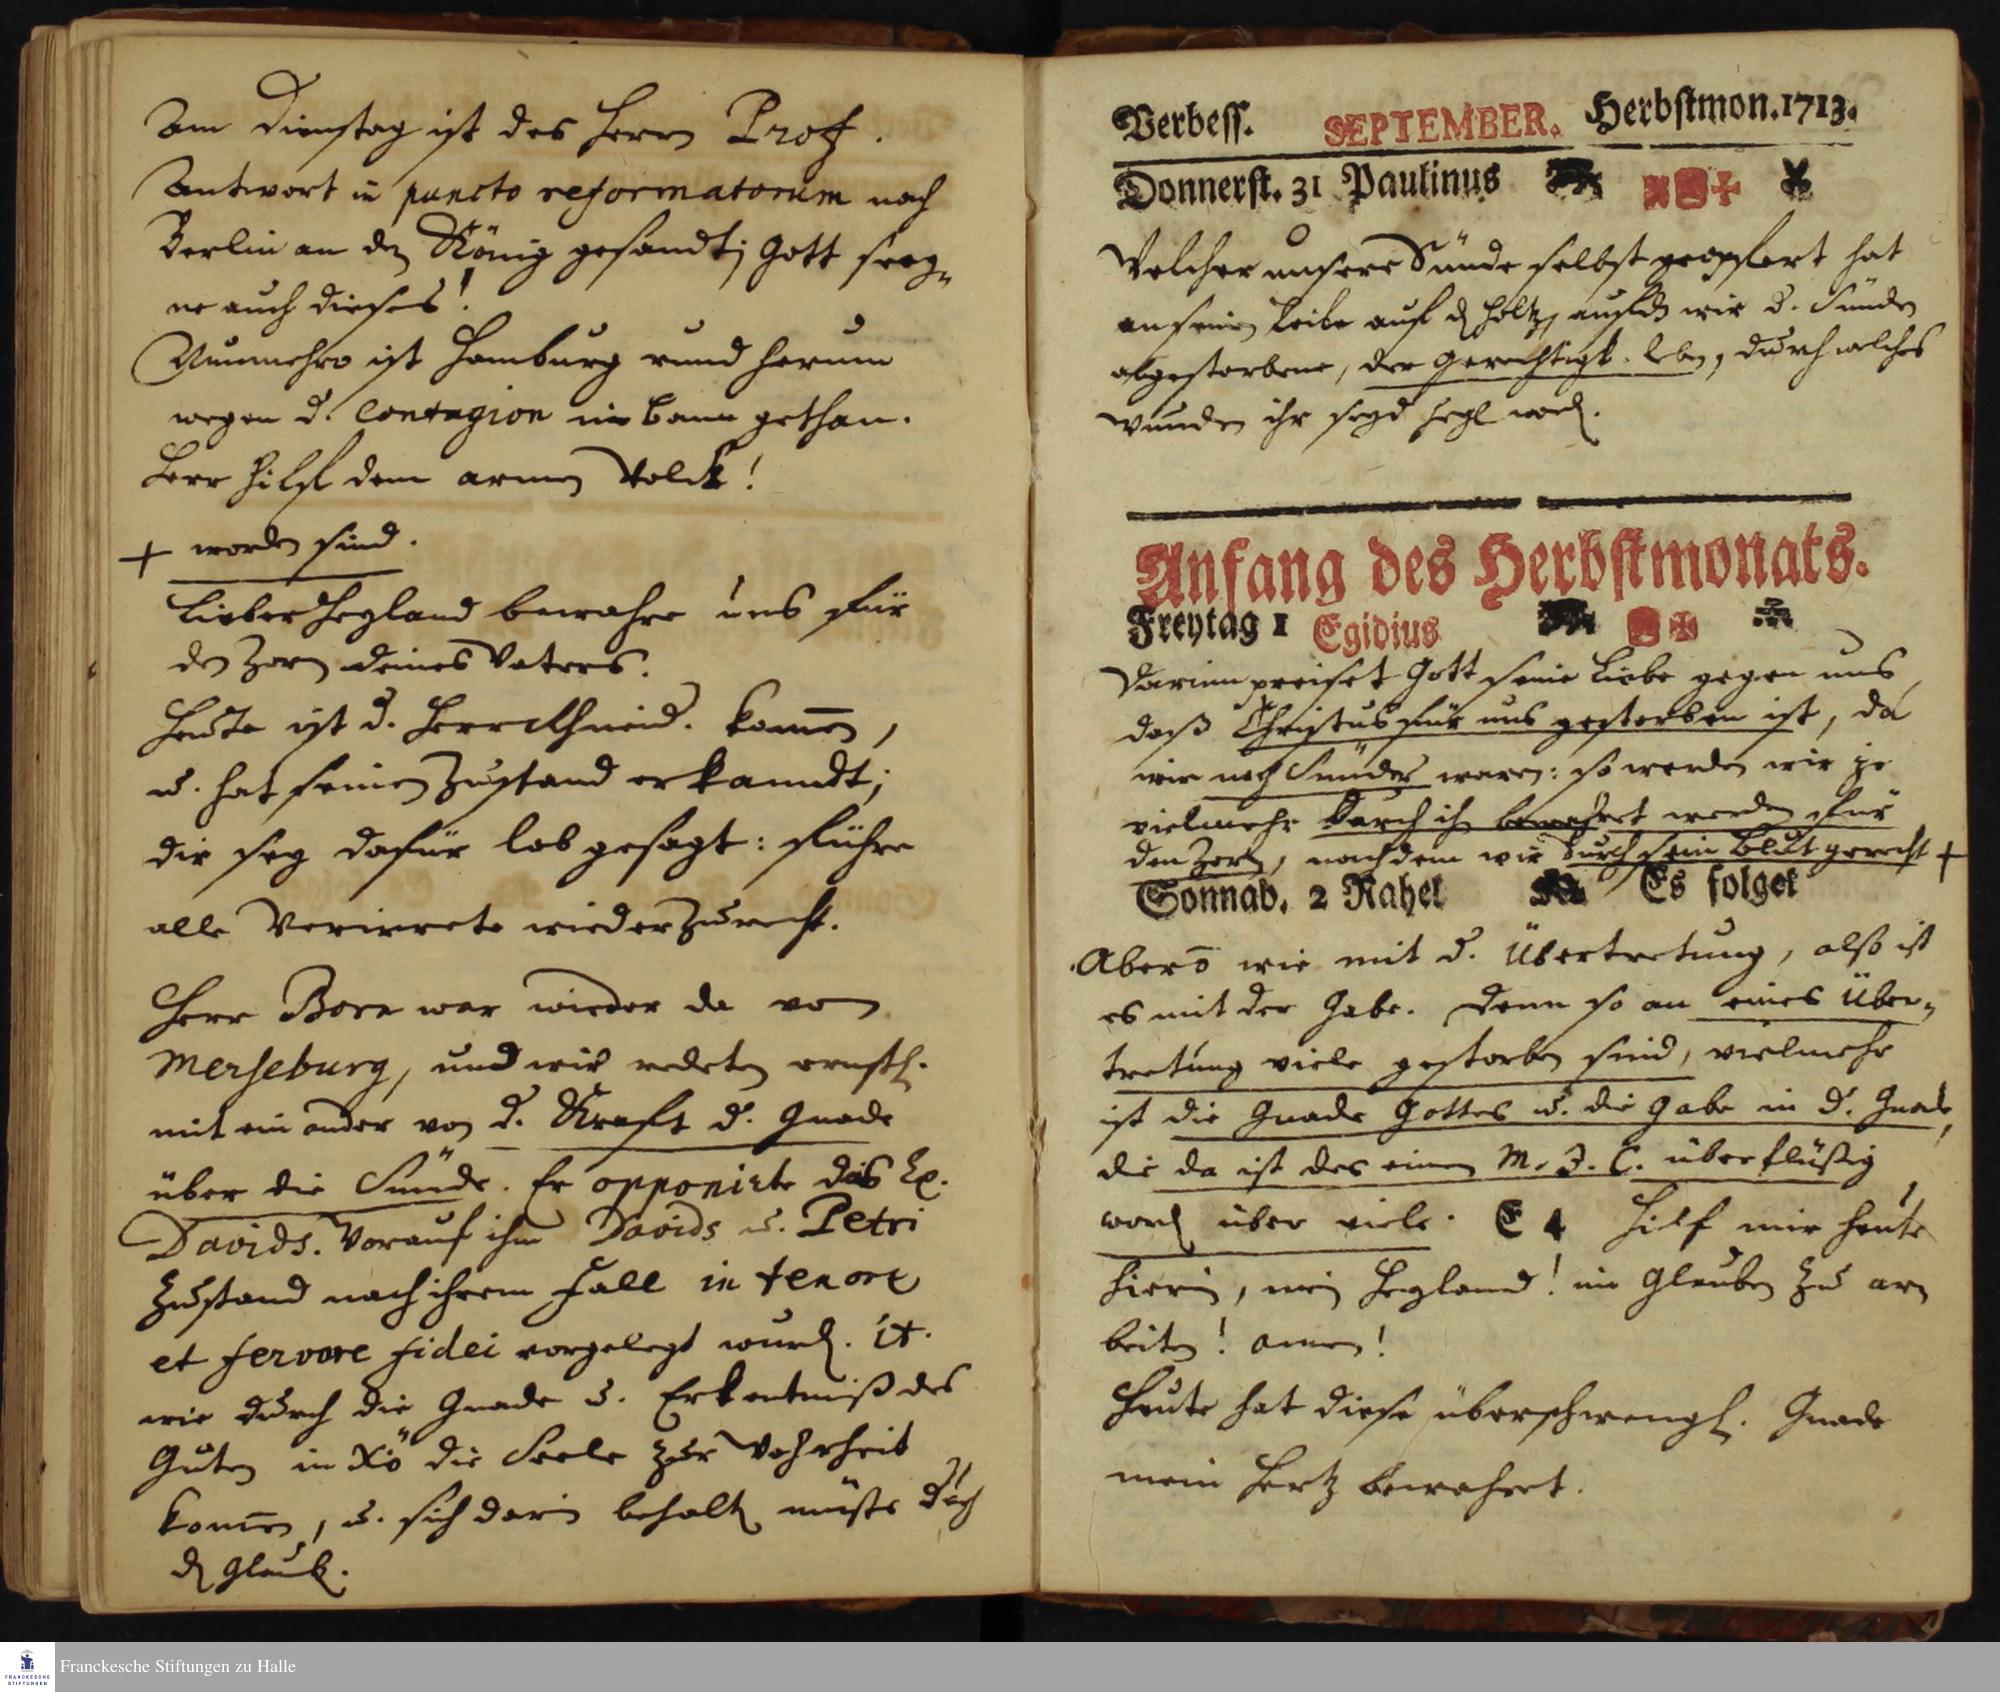 Am Dienstag ist des Herrn Prof.
Antwort in puncto reformatorum nach
Berlin an den König gesandt; Gott seeg-
ne auch dieses!
Nunmehro ist Hamburg rund herum
wegen d. Contagion in Bann gethan.
Herr hilf dem armen Volck!
+ worden sind.
Lieber Heyland bewahre uns für
den Zorn deines Vaters.
Heute ist d. Herr kommen,
u. hat seinen Zustand erkanndt;
dir sey dafür lob gesagt: führe
alle Verirrete wieder Zurecht.
Herr Born war wieder da von
Merseburg, und wir redeten ernstl.
mit einander von d. Krafft d. Gnade
über die Sünde. Er opponirte das Ex.
Davids. Vorauf ihm Davids u. Petri
Zustand nach ihrem Fall in tenore
et fervore fidei vorgelegt wurd. it.
wie durch die Gnade u. Erkentniß des
Guten in Xo die Seele zur Wahrheit
kommen, u. sich darin behalten müste durch
den Glaub.
Verbess. SEPTEMBER. Herbstmon. 1713.
Donnerst. 31 Paulinus
Welcher unsere Sünde selbst geopfert hat
an seinem Leibe auf d. Holtz, auf daß wir d. Sünden
abgestorben, der Gerechtigk. leben, durch welches
Wunden ihr seyd heyl word.
Anfang des Herbstmonats.
Freytag 1 Egidius
Darinn preiset Gott seine Liebe gegen uns,
daß Christus für uns gestorben ist, da
wir noch Sünder waren: so werden wir je
vielmehr durch ihn bewahret werden für
den Zorn, nachdem wir durch sein Blut gerecht +
Sonnab. 2 Rahel Es folget
Aber ō wie mit d. Übertretung, also ist
es mit der Gabe. Denn so an eines Über-
tretung viele gestorben sind, vielmehr
ist die Gnade Gottes u. die Gabe in d. Gnade,
die da ist des einen M. J. C. überflüßig
word über viele. E 4 Hilf mir heute
hierin, mein Heyland! im Glauben zu ar
beiten! amen!
Heute hat diese überschwengl. Gnade
mein Hertz bewahret.
Franckesche Stiftungen zu Halle
FRANCKESCHE
STIFTUNGEN